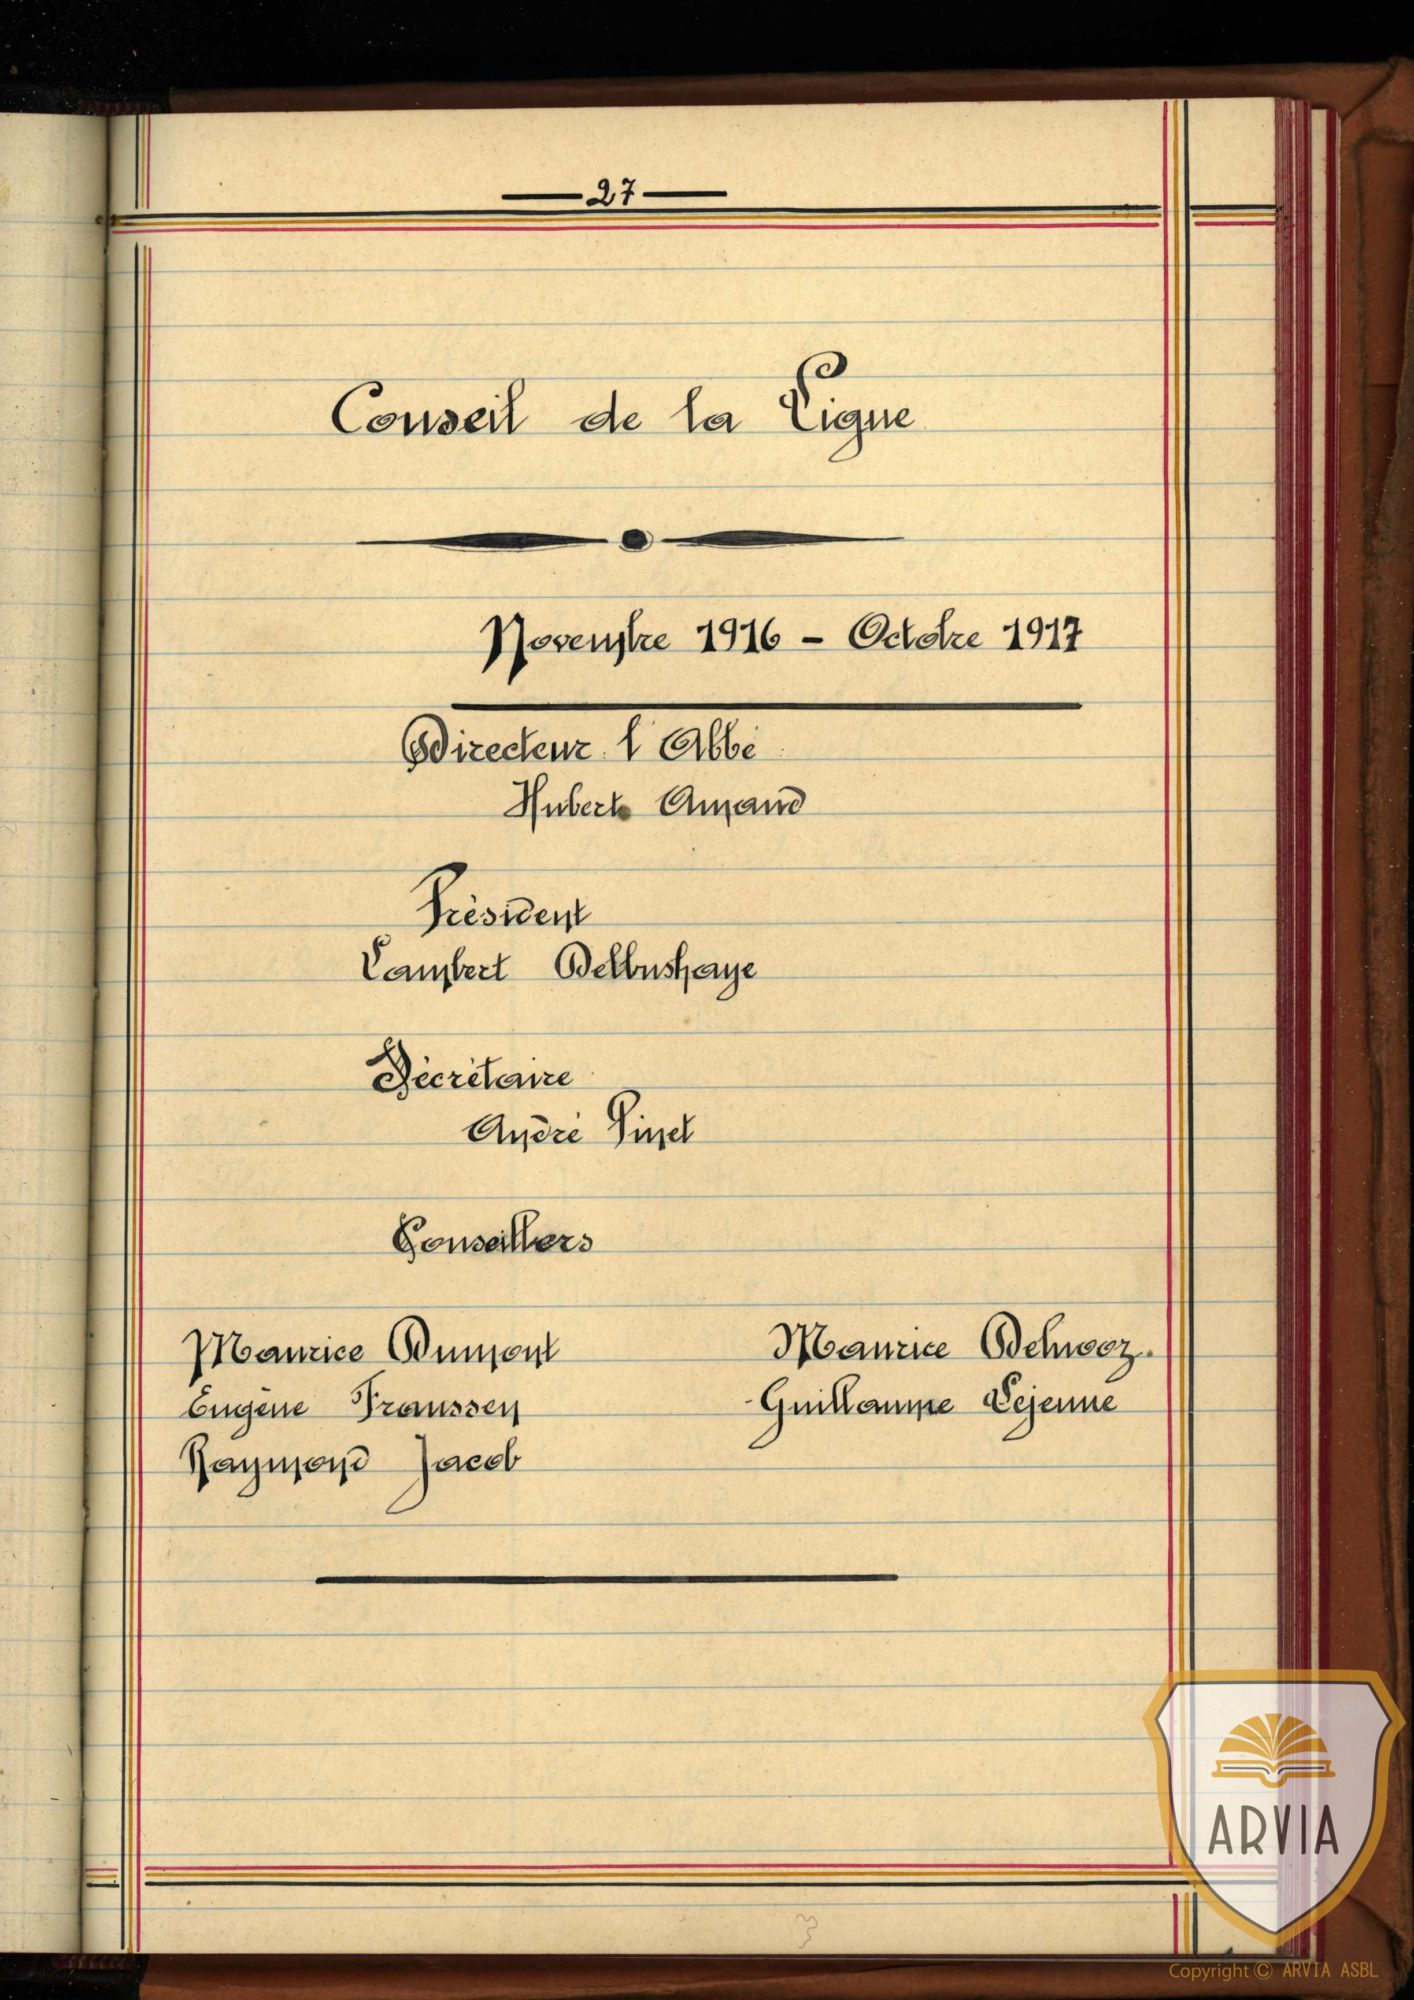 — 27 —
Conseil de la Ligue
Novembre 1916 – Octobre 1917
Directeur l'Abbé
Hubert Amand
Président
Lambert Delbushaye
Sécrétaire
André Pinet
Conseillers
Maurice Dumont Maurice Delwooz.
Eugène Franssen Guillaume Lejeune
Raymond Jacob
3
ARVIA
Copyright © ARVIA ASBL